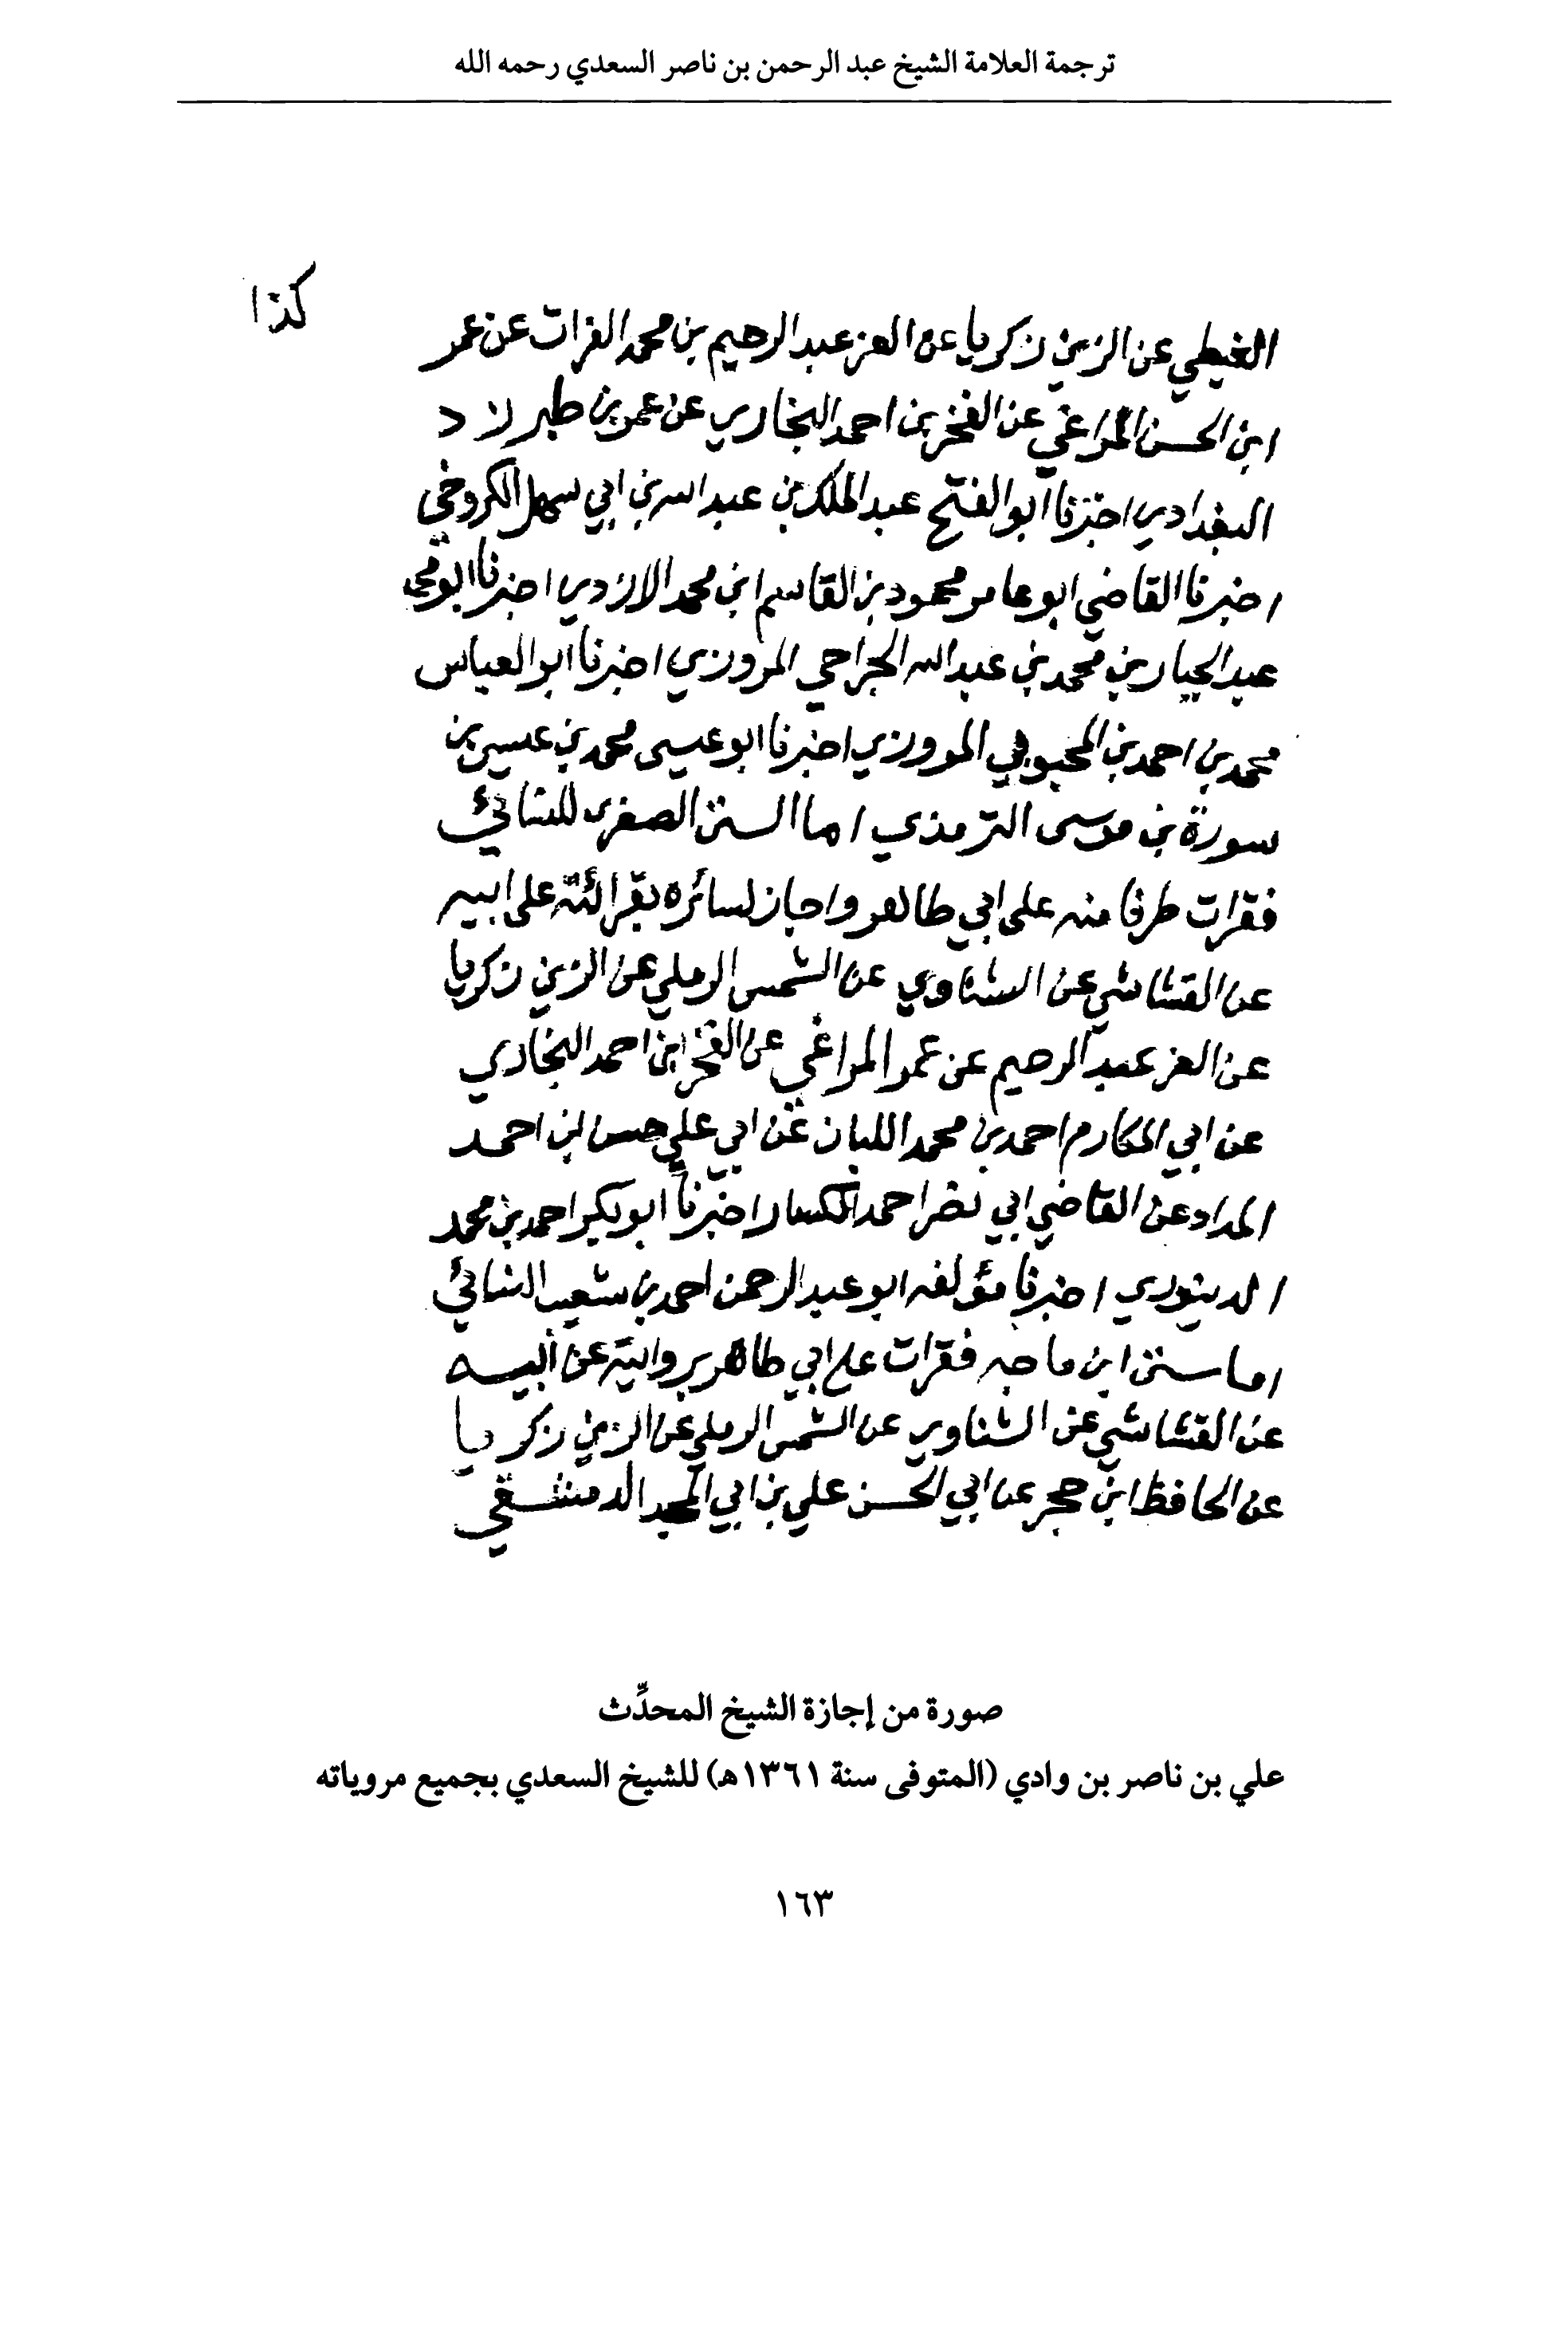 ترجمة العلامة الشيخ عبد الرحمن بن ناصر السعدي رحمه الله
كذا
الغيطي عن الزين زكريا عن العز عبد الرحيم بن محمد الفرات عن عمر
ابن الحسن المراغي عن الفخر بن احمد البخاري عن عمر بن طبرلاد
البغدادي اخبرنا ابو الفتح عبد الملك بن عبد الله بن ابي سهل الكروخي
اخبرنا القاضي ابو عامر محمود بن القاسم ابن محمد الازدي اخبرنا ابو محمد
عبد الجبار بن محمد بن عبد الله الجراحي المروزي اخبرنا ابو العباس
محمد بن احمد بن المحبوبي المروزي اخبرنا ابو عيسى محمد بن عيسى بن
سورة بن موسى الترمذي اما السنن الصغرى للنسائي
فقرات طرفا منه على ابي طاهر واجاز لسائره بقرائته على ابيه
عن القشاشي عن الشناوي عن الشمس الرملي عن الزين زكريا
عن العز عبد الرحيم عن عمر المراغي عن الفخر ابن احمد البخاري
عن ابي المكارم احمد بن محمد اللبان عن ابي علي حسن ابن احمد
المداد عن القاضي ابي نصر احمد الكسار اخبرنا ابو بكر احمد بن محمد
الدينوري اخبرنا مؤلفه ابو عبد الرحمن احمد بن شعيب النسائي
اما سنن ابن ماجه فقرات على ابي طاهر بروايته عن ابيه
عن القشاشي عن الشناوي عن الشمس الرملي عن الزين زكريا
عن الحافظ ابن حجر عن ابي الحسن علي بن ابي المجد الدمشقي
صورة من إجازة الشيخ المحدِّث
علي بن ناصر بن وادي (المتوفى سنة ١٣٦١هـ) للشيخ السعدي بجميع مروياته
١٦٣